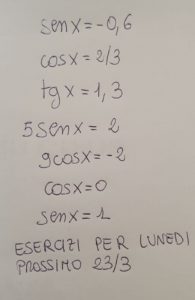 senx = -0,6
cosx = 2/3
tgx = 1,3
5senx = 2
9cosx = -2
cosx = 0
senx = 1
ESERCIZI PER LUNEDI
PROSSIMO 23/3